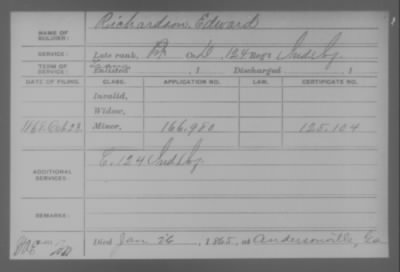 NAME OF SOLDIER: Richardson, Edward
SERVICE: Late rank, Co. 124 Reg't Ind. Inf.
TERM OF SERVICE: Enlisted , 1 Discharged , 1
DATE OF FILING. CLASS. APPLICATION NO. LAW. CERTIFICATE NO.
Invalid,
Widow,
Oct 23 Minor, 166,980 125,104
ADDITIONAL SERVICES: C. 124 Ind. Inf.
REMARKS:
Died Jan 26, 1865, at Andersonville, Ga